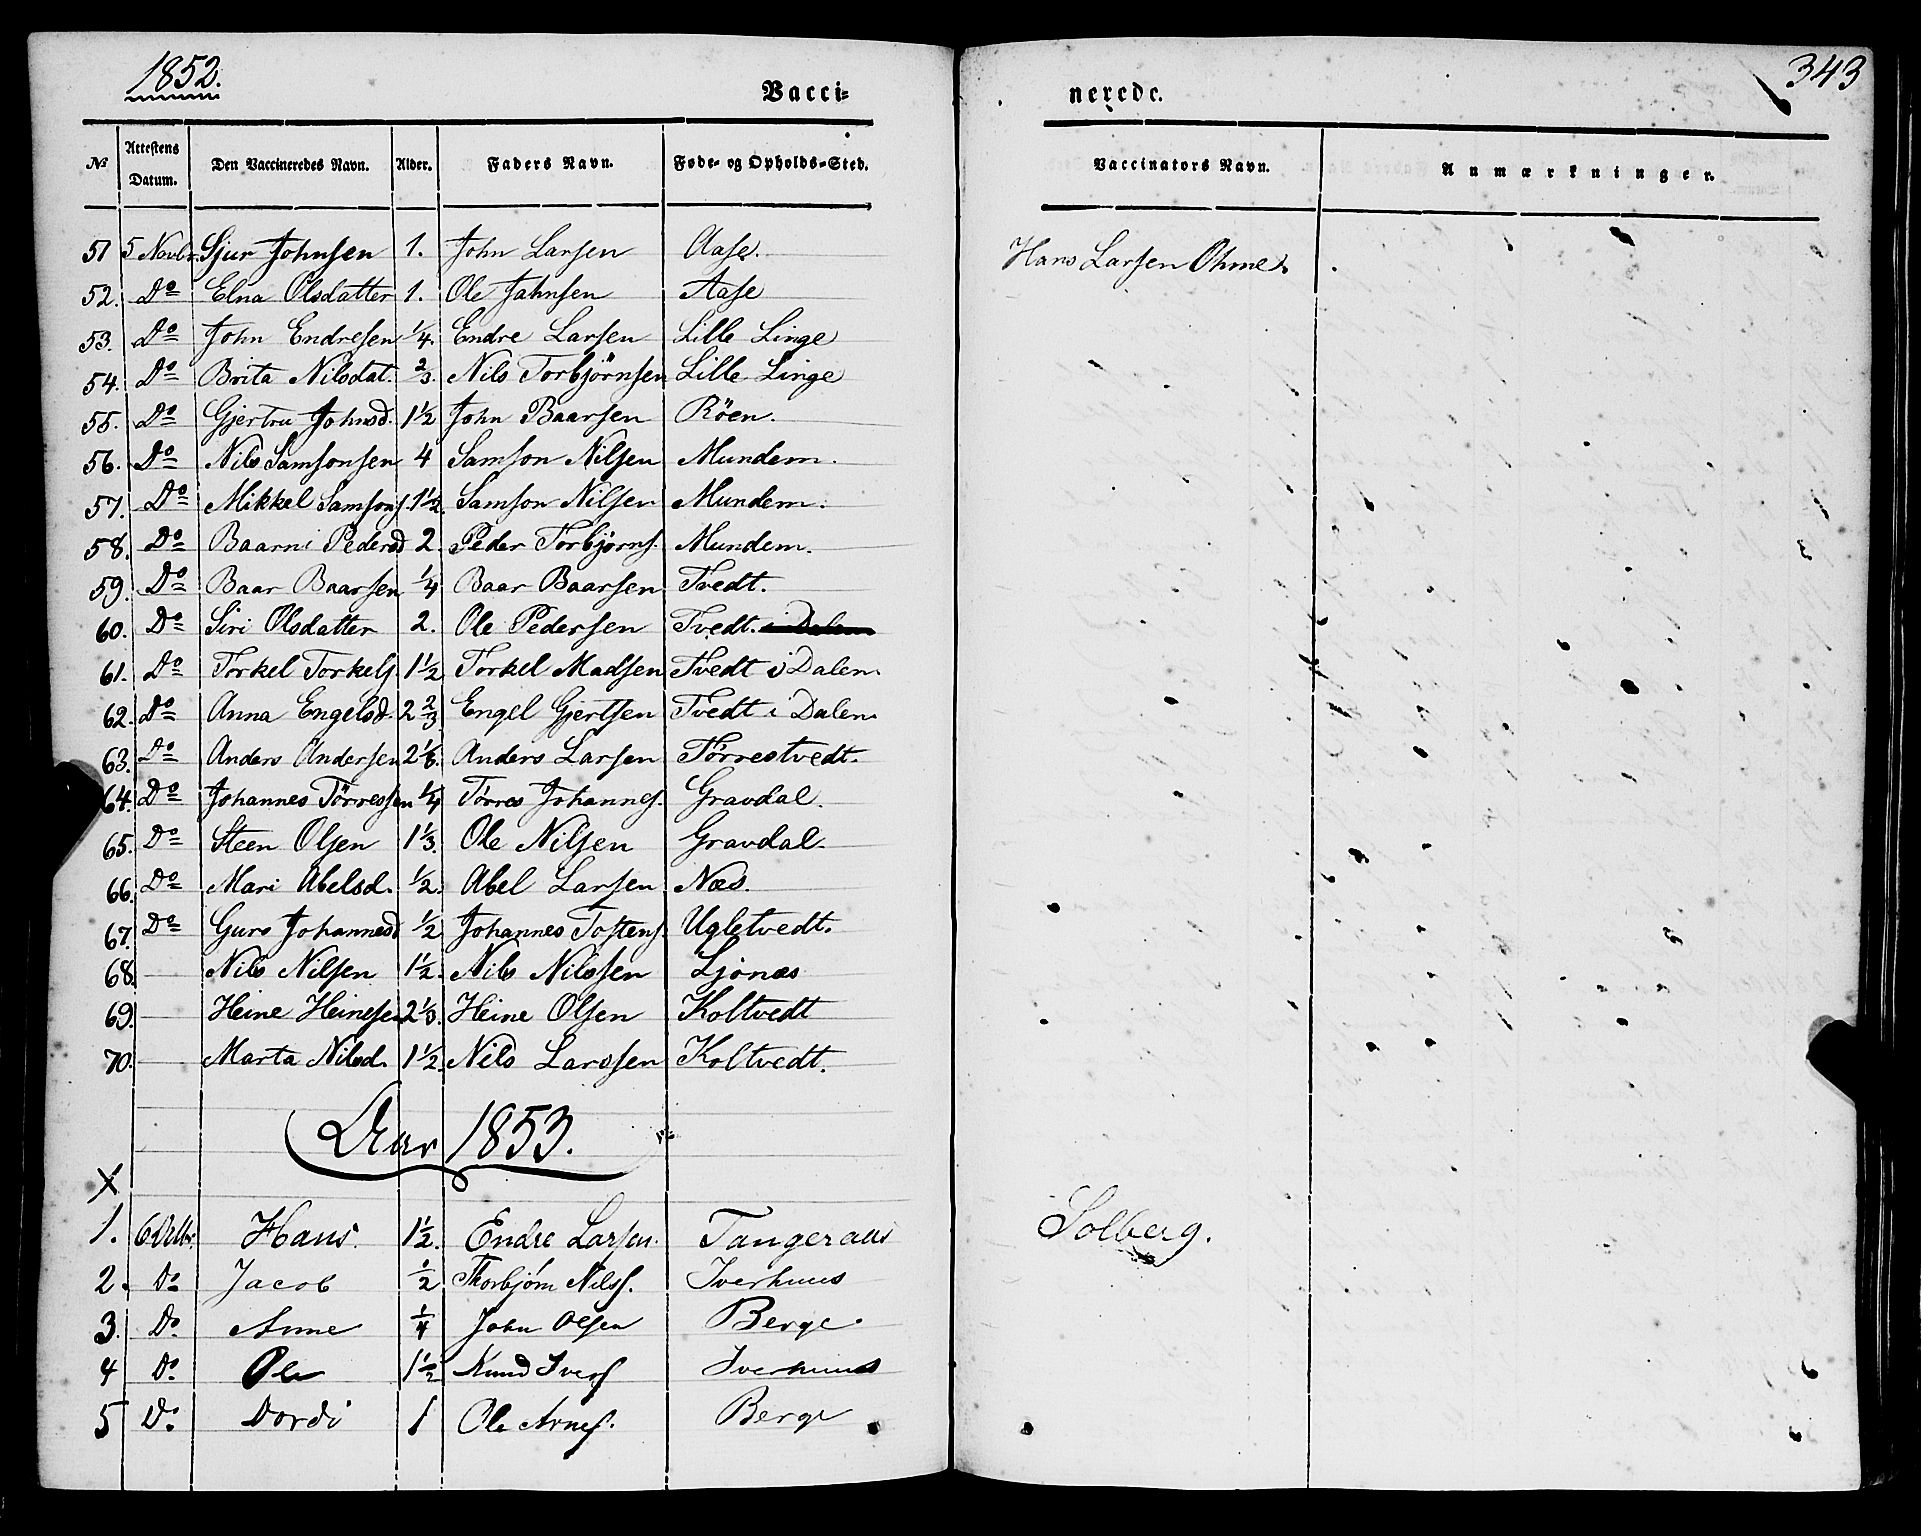 1852.
343
Vacci= nerede.
№ Attestens Datum. Den Vaccineredes Navn. Alder. Faders Navn. Føde- og Opholds-Sted. Vaccinators Navn. Anmærkninger.
51 5 Novbr. Sjur Johnsen 1. John Larsen Aase. Hans Larsen Ohme.
52. Do Elna Olsdatter 1. Ole Johnsen Aase
53. Do John Endresen 1/4. Endre Larsen Lille Linge
54. Do Brita Nilsdat. 2/3. Nils Torbjörnsen Lille Linge
55. Do Gjertru Johnsd. 1 1/2 John Baarsen Röen.
56. Do Nils Samsonsen 4 Samson Nilsen Mundem.
57. Do Mikkel Samsons. 1 1/2. Samson Nilsen Mundem.
58. Do Baarni Pedersd 2. Peder Torbjørns. Mundem.
59. Do Baar Baarsen 1/4 Baar Baarsen Tvedt.
60. Do Siri Olsdatter 2. Ole Pedersen Tvedt. i Dalen
61. Do Torkel Torkels. 1 1/2 Torkel Madsen Tvedt i Dalen
62. Do Anna Engelsd. 2 2/3 Engel Gjertsen Tvedt i Dalen
63. Do Anders Andersen 2 1/6. Anders Larsen Törrestvedt.
64. Do Johannes Törressen 1/4 Törres Johannes. Gravdal.
65. Do Steen Olsen 1 1/3. Ole Nilsen Gravdal.
66. Do Mari Abelsd. 1/2. Abel Larsen Næs.
67. Do Guro Johannesd 1/2 Johannes Tostens. Ugletvedt.
68. — Nils Nilsen 1 1/2. Nils Nilssen Ljonæs
69. — Heine Heinesen 2 1/3. Heine Olsen Koltvedt
70. — Marta Nilsd. 1 1/2. Nils Larssen Koltvedt.
Aar 1853.
X
1. Hans. 1 1/2. Endre Larsen. Tangeraas Solberg.
2. Do Jacob 1/2 Thorbjørn Nilss. Iverhuus
3. Do Anne 1/4 John Olsen Berge.
4 Do Ole 1 1/2 Knud Ivers Iverhuus
5 Do Dordi 1 Ole Arnes. Berge